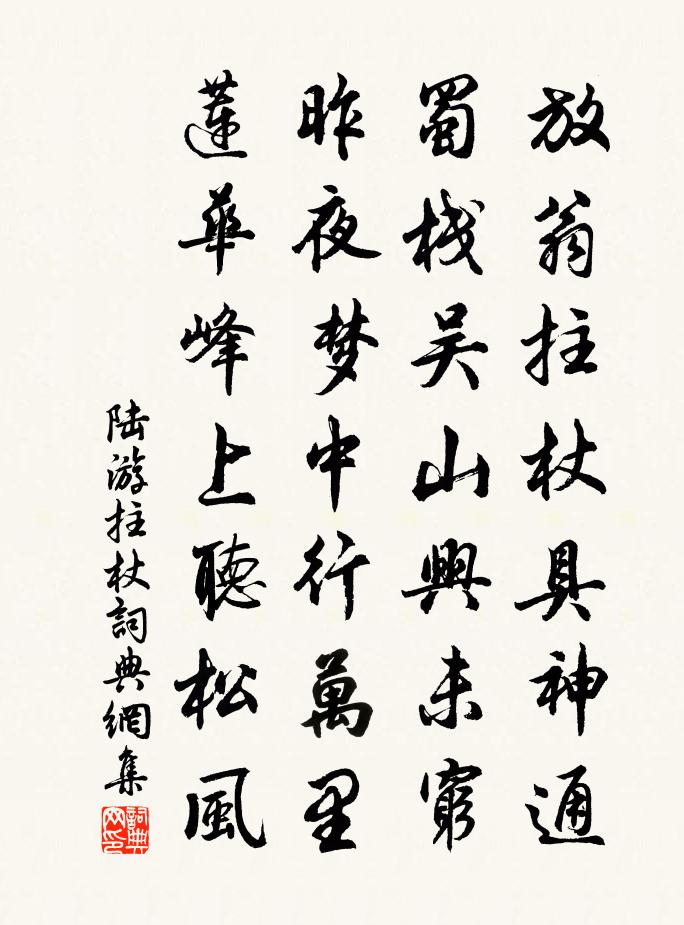 放翁拄杖具神通
蜀棧吴山興未窮
昨夜梦中行萬里
蓮華峰上聽松風
陆游拄杖詞典網集
詞典网印